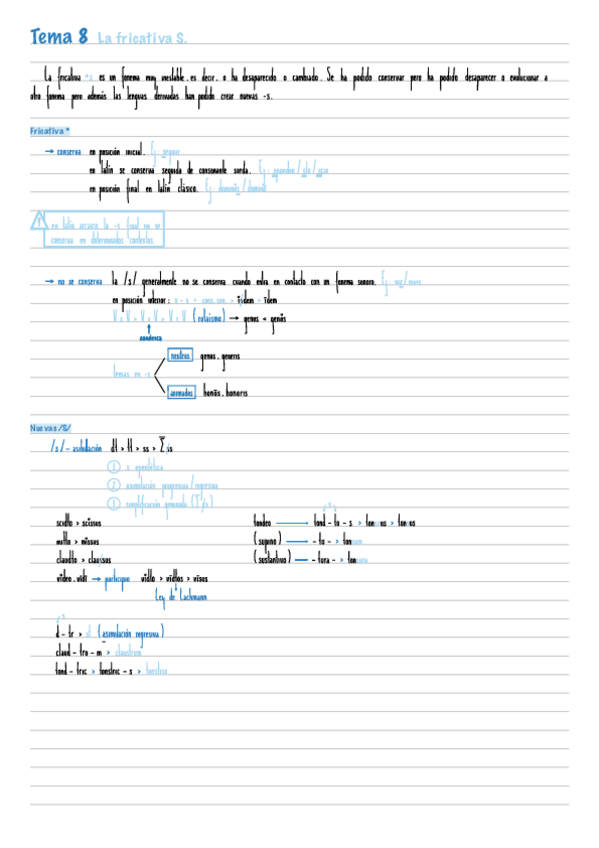 Tema 8 La fricativa S.
La fricativa *s es un fonema muy inestable, es decir, o ha desaparecido o cambiado. Se ha podido conservar pero ha podido desaparecer o evolucionar a
otro fonema pero además las lenguas derivadas han podido crear nuevas -s.
Fricativa *
→ conserva en posición inicial. Ej: sequor
en latín se conserva seguida de consonante sorda. Ej:
en posición final en latín clásico. Ej:
en latín arcaico la -s final no se
conserva en determinados contextos.
→ no se conserva la /s/ generalmente no se conserva cuando entra en contacto con un fonema sonoro. Ej:
en posición interior: v - s + cons. son. > īsdem = īdem
V s V > V z V > V r V (rotacismo) → genus <
sonoriza
neutros genus, generis
temas en -s
animados honōs, honoris
Nuevas /S/
/s/ - asimilación dt > tt > ss > s̄s
① s epentética
② asimilación progresiva/regresiva
③ simplificación geminada
scidto > scissus
mitto > missus
claudto > claussus
video, vidī → participio vidto > vidtos > vīsus
Ley de Lachmann
tondeo → tond - to - s > tonsus
(supino) → - tu - > tonsum
(sustantivo) → - tura - > tonsura
d - tr > st (asimilación regresiva)
claud - tro - m > claustrum
tond - tric > tonstric - s > tonstrix